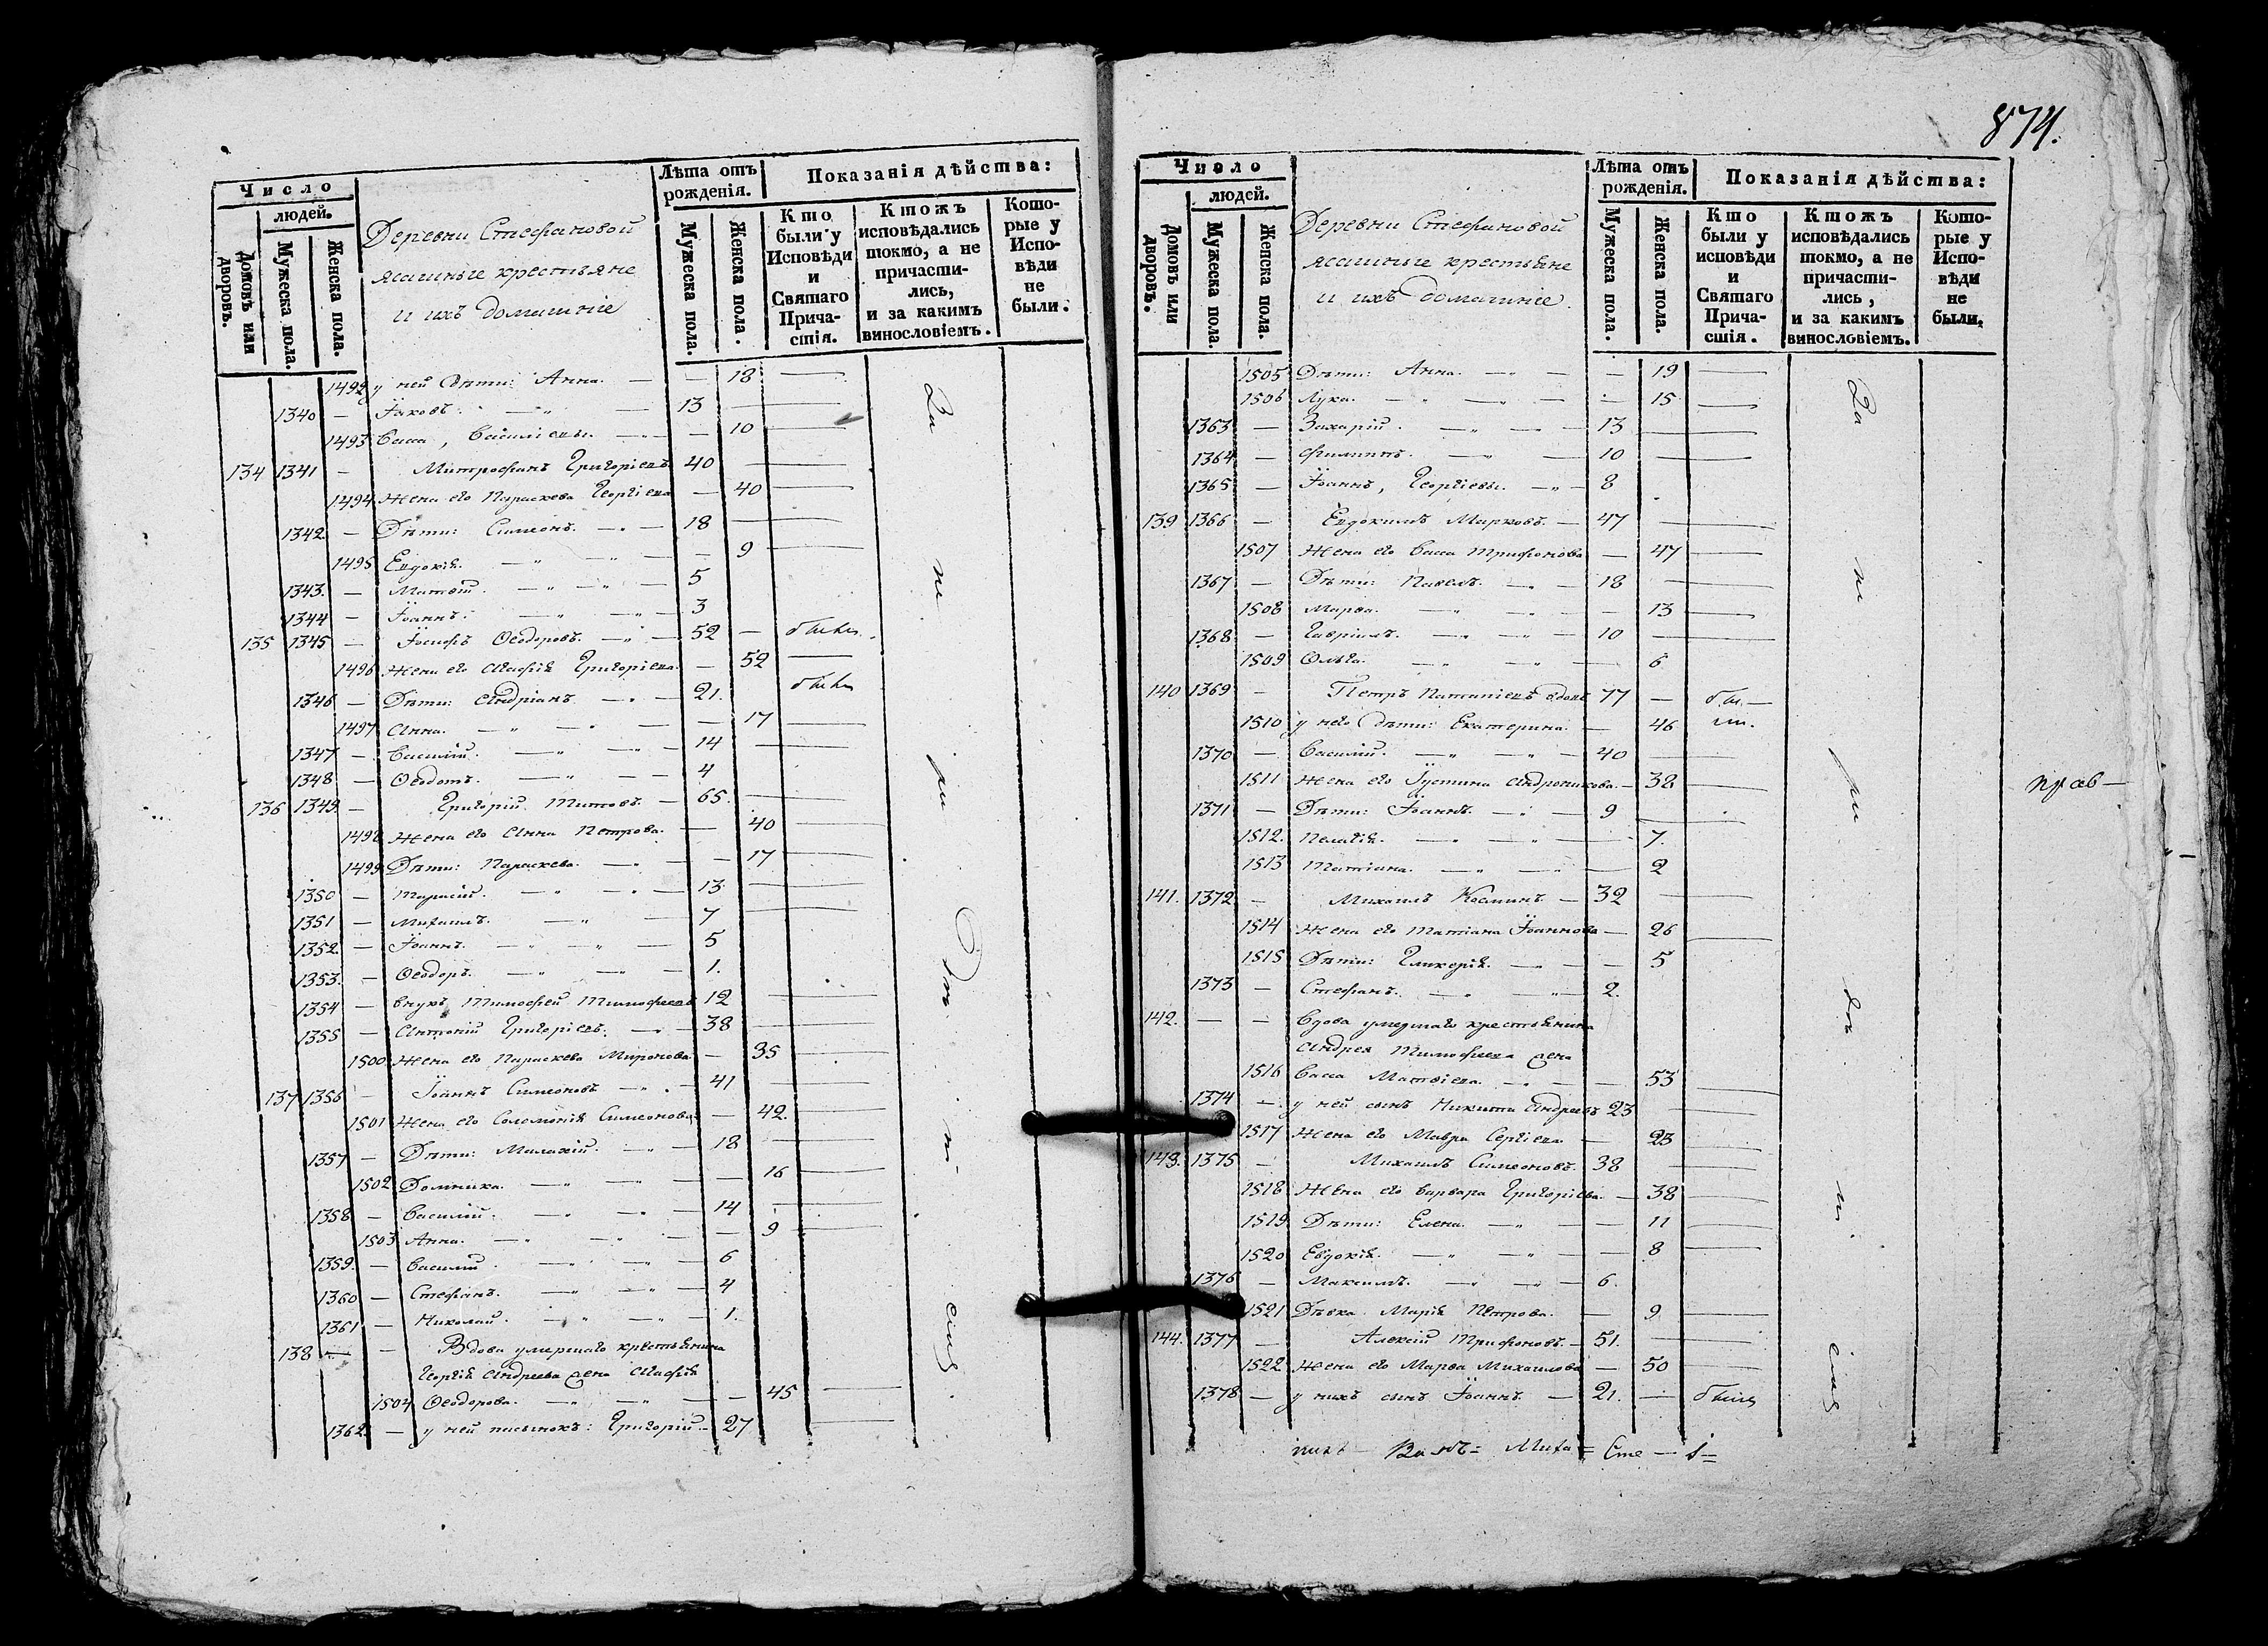 Число
людей.
Домовъ или дворовъ.
Мужеска пола.
Женска пола.
Деревни Стефановой
ясашные крестьяне
и ихъ домашніе
Лѣта отъ рожденія.
Мужеска пола.
Женска пола.
Показанія дѣйства:
Кто были у Исповѣди и Святаго Причастія.
Ктожъ исповѣдались токмо, а не причастились, и за какимъ винословіемъ.
Которые у Исповѣди не были.
1492 у ней дѣти: Анна. — — 18 —
1340 — Іаковъ. — 13 —
1493 Васса, Василіевы. — — 10 —
134 1341 — Митрофанъ Григоріевъ 40 —
1494 Жена его Параскева Георгіева — 40 —
1342 — Дѣти: Симеонъ. — 18 —
1495 Евдокія. — — 9 —
1343. — Матѳій. — 5
1344 — Іоаннъ. — 3
135 1345 — Іосифъ Ѳеодоровъ. — 52 — былъ
1496 Жена его Агафія Григоріева. — 52 —
1346 — Дѣти: Андріанъ — 21. былъ
1497 Анна. — — 17 —
1347 — Василій. — 14 —
1348 — Ѳеодотъ. — 4
136 1349. — Григорій Титовъ. — 65. —
1498 Жена его Анна Петрова. — 40 —
1499 Дѣти: Параскева. — — 17 —
1350 — Тарасій. — 13 —
1351 — Михаилъ. — 7 —
1352. — Іоаннъ. — 5
1353. — Ѳеодоръ. — 1.
1354 — внукъ Тимофей Тимофеевъ 12 —
1355 — Антоній Григоріевъ. — 38 —
1500 Жена его Параскева Миронова — 35 —
137 1356 — Іоаннъ Симеоновъ — 41 —
1501 Жена его Соломонія Симеонова — 42. —
1357 — Дѣти: Малахій. — 18 —
1502 Домника. — — 16 —
1358 — Василій. — 14 —
1503 Анна. — — 9 —
1359. — Василій. — 6
1360 — Стефанъ. — 4
1361 — Николай. — 1.
138 — — Вдова умершаго крестьянина
Георгія Андреева жена Агафія
1504 Ѳеодорова. — — 45 —
1362. — у ней пасынокъ: Григорій — 27 —
За не ра дѣ ні емъ
874.
Число
людей.
Домовъ или дворовъ.
Мужеска пола.
Женска пола.
Деревни Стефановой
ясашные крестьяне
и ихъ домашніе.
Лѣта отъ рожденія.
Мужеска пола.
Женска пола.
Показанія дѣйства:
Кто были у исповѣди и Святаго Причастія.
Ктожъ исповѣдались токмо, а не причастились, и за какимъ винословіемъ.
Которые у Исповѣди не были.
1505 Дѣти: Анна. — — 19 —
1506 — — 15 —
1363 — Захарій. — 13 —
1364 — Филиппъ. — 10 —
1365 — Іоаннъ, Георгіевы. — 8
139 1366 — Евдокимъ Марковъ. — 47 —
1507 Жена его Васса Трифонова — 47 —
1367 — Дѣти: Павелъ. — 18 —
1508 Марѳа. — — 13 —
1368 — Гавріилъ. — 10 —
1509 Ольга. — — 6
140 1369 — Петръ вдовъ 77 — был.
1510 у него дѣти: Екатерина. — 46
1370 — Василій. — 40 —
1511 Жена его Іустина Андроникова. — 38 —
1371 — Дѣти: Іоаннъ. — 9 —
1512. Пелагія. — — 7.
1513 Татіана. — — 2
141. 1372 — Михаилъ Косминъ — 32 —
1514 Жена его Татіана Іоаннова — 26 —
1515 Дѣти: Гликерія. — — 5
1373 — Стефанъ. — 2.
142. — — Вдова умершаго крестьянина
Андрея Тимофеева жена
1516 Васса Матѳіева. — — 53 —
1374 — у ней сынъ Никита Андреевъ 23 —
1517 Жена его Мавра Сергіева — 23 —
143. 1375 — Михаилъ Симеоновъ. 38 —
1518 Жена его Варвара Григоріева — 38 —
1519 Дѣти: Елена. — — 11 —
1520 Евдокія. — — 8 —
1376 — Максимъ. — 6.
1521 Дѣвка Марія Петрова. — 9 —
144. 1377 — Алексій Трифоновъ. — 51. —
1522 Жена его Марѳа Михаилова — 50 —
1378 — у нихъ сынъ Іоаннъ. — 21. — былъ
За не ра дѣ ні емъ
прав—
Миха = Сте —